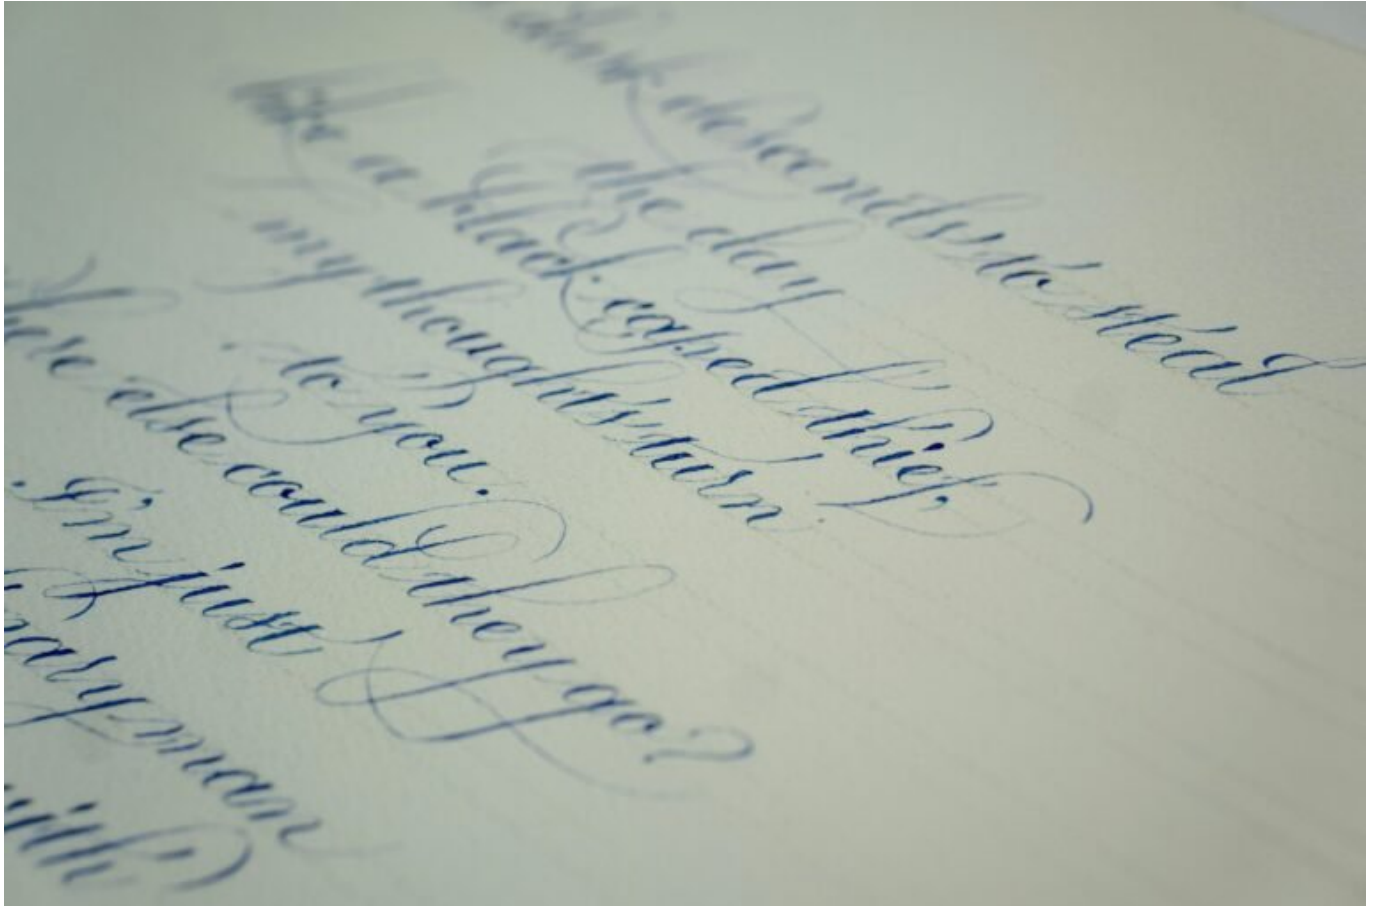 dark descends to steal
the day
like a black caped thief,
my thoughts turn
to you.
here else could they go?
I'm just
nary man
with